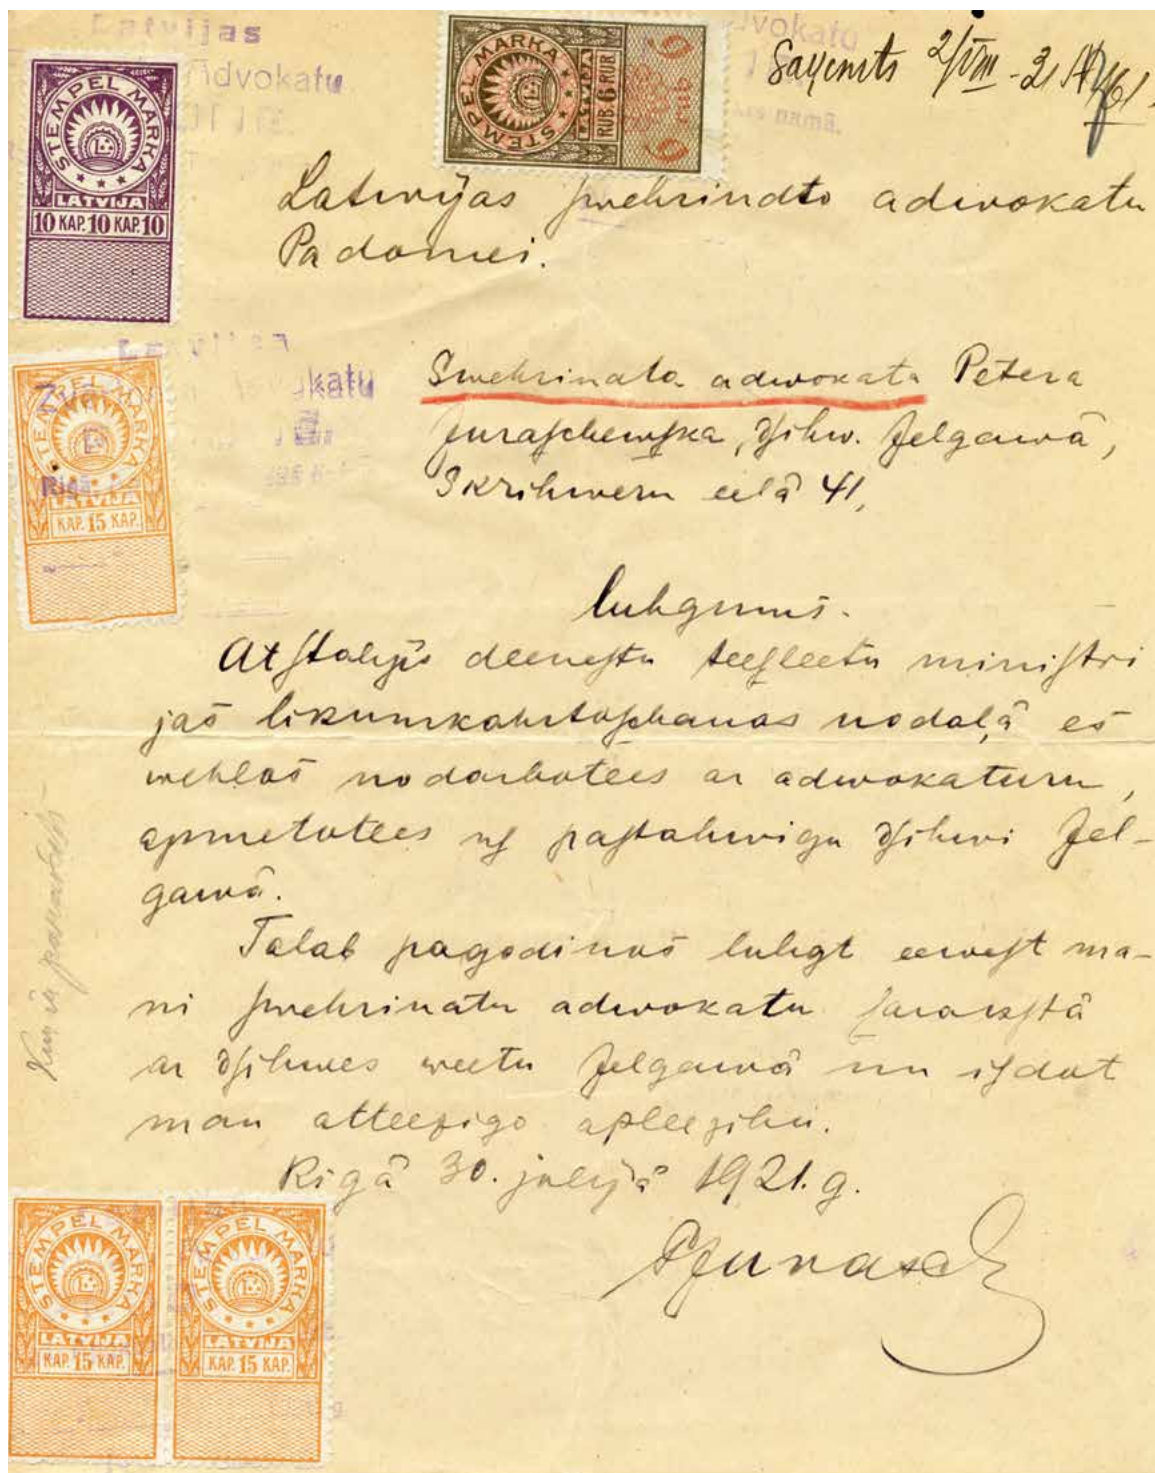 Latvijas
advokatu
STEMPEL MARKA
LATVIJA
10 KAP. 10 KAP. 10
STEMPEL MARKA
RUB. 6 RUR
6 RUB 6
Saņemts 2/VIII - 21
namā.
Latwijas swehrinato adwokatu
Padomei.
STEMPEL MARKA
LATVIJA
KAP. 15 KAP.
katu
Swehrinata adwokata Petera
Juraschewska, dsihw. Jelgawā,
Skrihweru eelā 41,
luhgums.
Atstahjis deenestu teesleetu ministri
jas likumkahrtoschanas nodaļā es
wehlos nodarbotees ar adwokaturu,
apmetotees us pastahwigu dsihwi Jel-
gawā.
Talab pagodinos luhgt eewest ma-
ni swehrinatu adwokatu sarakstā
ar dsihwes weetu Jelgawā un isdot
man atteezigo apleezibu.
Rigā 30. julijā 1921. g.
PJurasch
STEMPEL MARKA
LATVIJA
KAP. 15 KAP.
STEMPEL MARKA
LATVIJA
KAP. 15 KAP.